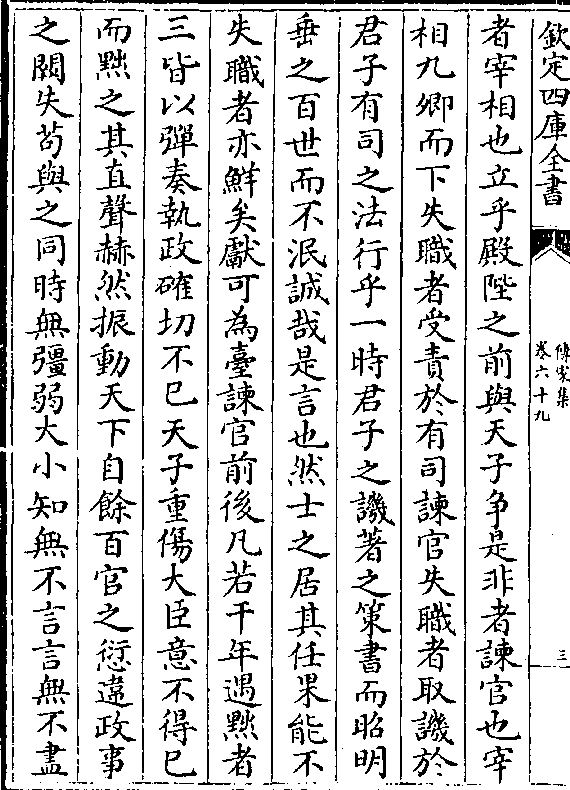 欽定四庫全書
傳家集
卷六十九
三
者宰相也立乎殿陛之前與天子争是非者諫官也宰
相九卿而下失職者受責於有司諫官失職者取譏於
君子有司之法行乎一時君子之譏著之策書而昭明
垂之百世而不泯誠哉是言也然士之居其任果能不
失職者亦鮮矣獻可為臺諫官前後凡若干年遇黜者
三皆以彈奏執政確切不已天子重傷大臣意不得已
而黜之其直聲赫然振動天下自餘百官之愆違政事
之闕失苟與之同時無彊弱大小知無不言言無不盡